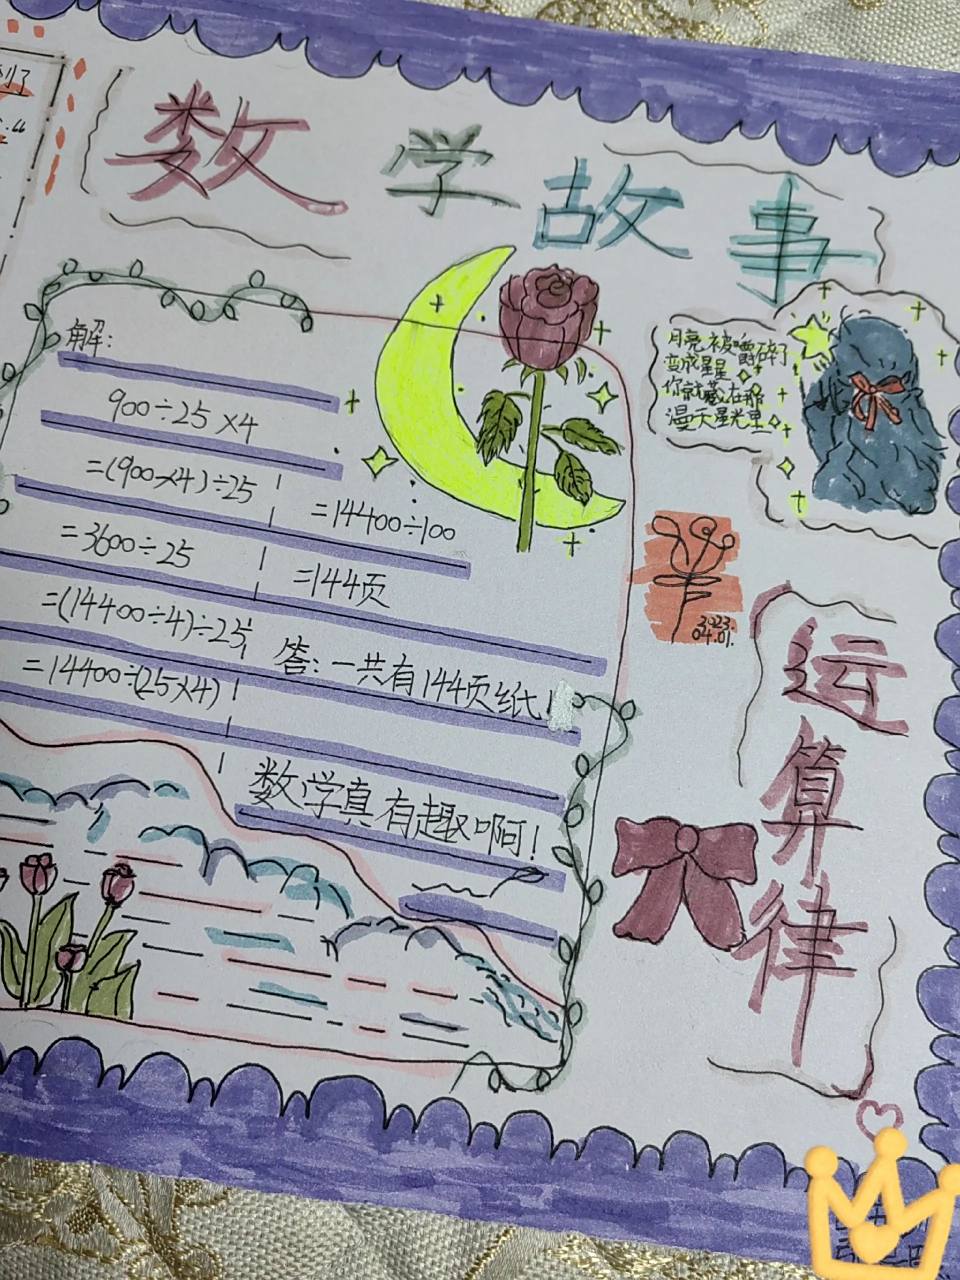 数学故事
解：
900÷25×4
=(900×4)÷25
=3600÷25
=(14400÷4)÷25
=14400÷(25×4)
=14400÷100
=144页
答：一共有144页纸！
数学真有趣啊！
月亮被嚼碎了
变成星星
你就藏在那
漫天星光里
2023.
04.01.
运算律